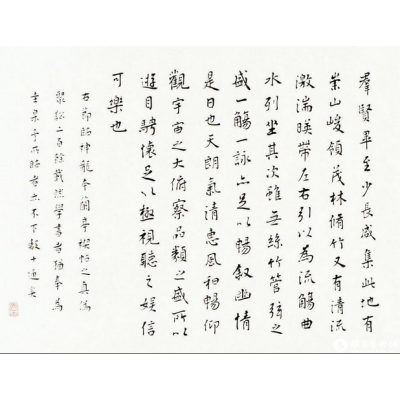 羣賢畢至少長咸集此地有
崇山峻領茂林脩竹又有清流
激湍暎帶左右引以為流觴曲
水列坐其次雖無絲竹管弦之
盛一觴一詠亦足以暢敘幽情
是日也天朗氣清惠風和暢仰
觀宇宙之大俯察品類之盛所以
遊目騁懷足以極視聽之娛信
可樂也
右節臨神龍本蘭亭
聚訟二百餘載然學書者猶奉為
圭臬予所臨者亦不下數十通矣